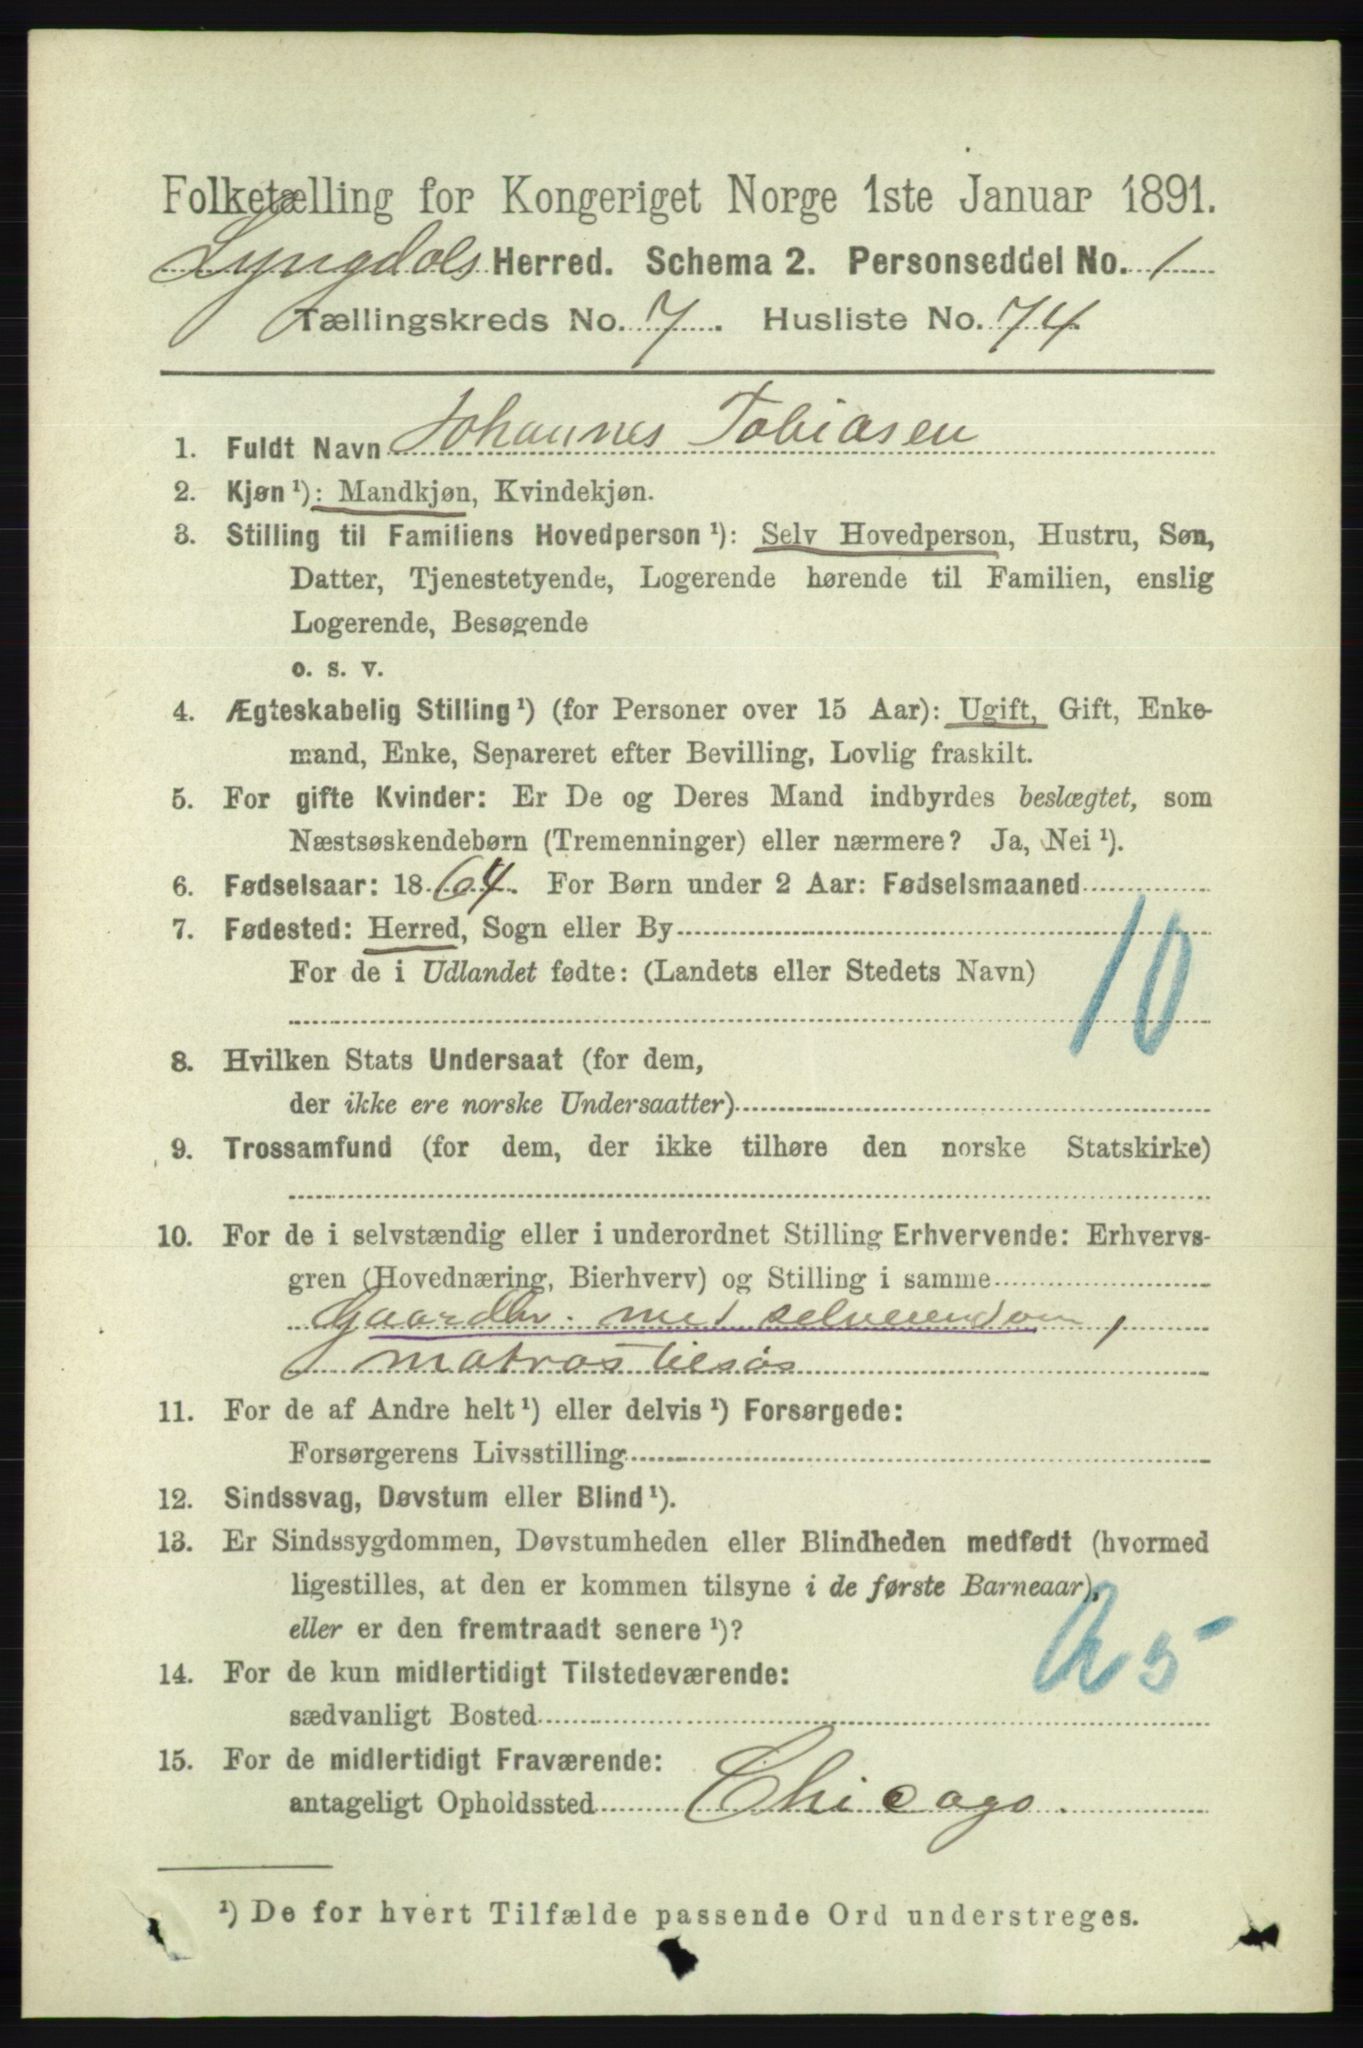 Folketælling for Kongeriget Norge 1ste Januar 1891.
Lyngdals Herred. Schema 2. Personseddel No. 1
Tællingskreds No. 7. Husliste No. 74.
1. Fuldt Navn Johannes Tobiasen
2. Kjøn¹): Mandkjøn, Kvindekjøn.
3. Stilling til Familiens Hovedperson¹): Selv Hovedperson, Hustru, Søn,
Datter, Tjenestetyende, Logerende hørende til Familien, enslig
Logerende, Besøgende
o. s. v.
4. Ægteskabelig Stilling¹) (for Personer over 15 Aar): Ugift, Gift, Enke-
mand, Enke, Separeret efter Bevilling, Lovlig fraskilt.
5. For gifte Kvinder: Er De og Deres Mand indbyrdes beslægtet, som
Næstsøskendebørn (Tremenninger) eller nærmere? Ja, Nei¹).
6. Fødselsaar: 1864. For Børn under 2 Aar: Fødselsmaaned
7. Fødested: Herred, Sogn eller By
10
For de i Udlandet fødte: (Landets eller Stedets Navn)
8. Hvilken Stats Undersaat (for dem,
der ikke ere norske Undersaatter)
9. Trossamfund (for dem, der ikke tilhøre den norske Statskirke)
10. For de i selvstændig eller i underordnet Stilling Erhvervende: Erhvervs-
gren (Hovednæring, Bierhverv) og Stilling i samme
Gaardbr. med selveiendom,
matros tilsøs
11. For de af Andre helt¹) eller delvis¹) Forsørgede:
Forsørgerens Livsstilling
12. Sindssvag, Døvstum eller Blind¹).
13. Er Sindssygdommen, Døvstumheden eller Blindheden medfødt (hvormed
ligestilles, at den er kommen tilsyne i de første Barneaar),
eller er den fremtraadt senere¹)?
14. For de kun midlertidigt Tilstedeværende:
sædvanligt Bosted
15. For de midlertidigt Fraværende:
antageligt Opholdssted Chicago.
¹) De for hvert Tilfælde passende Ord understreges.